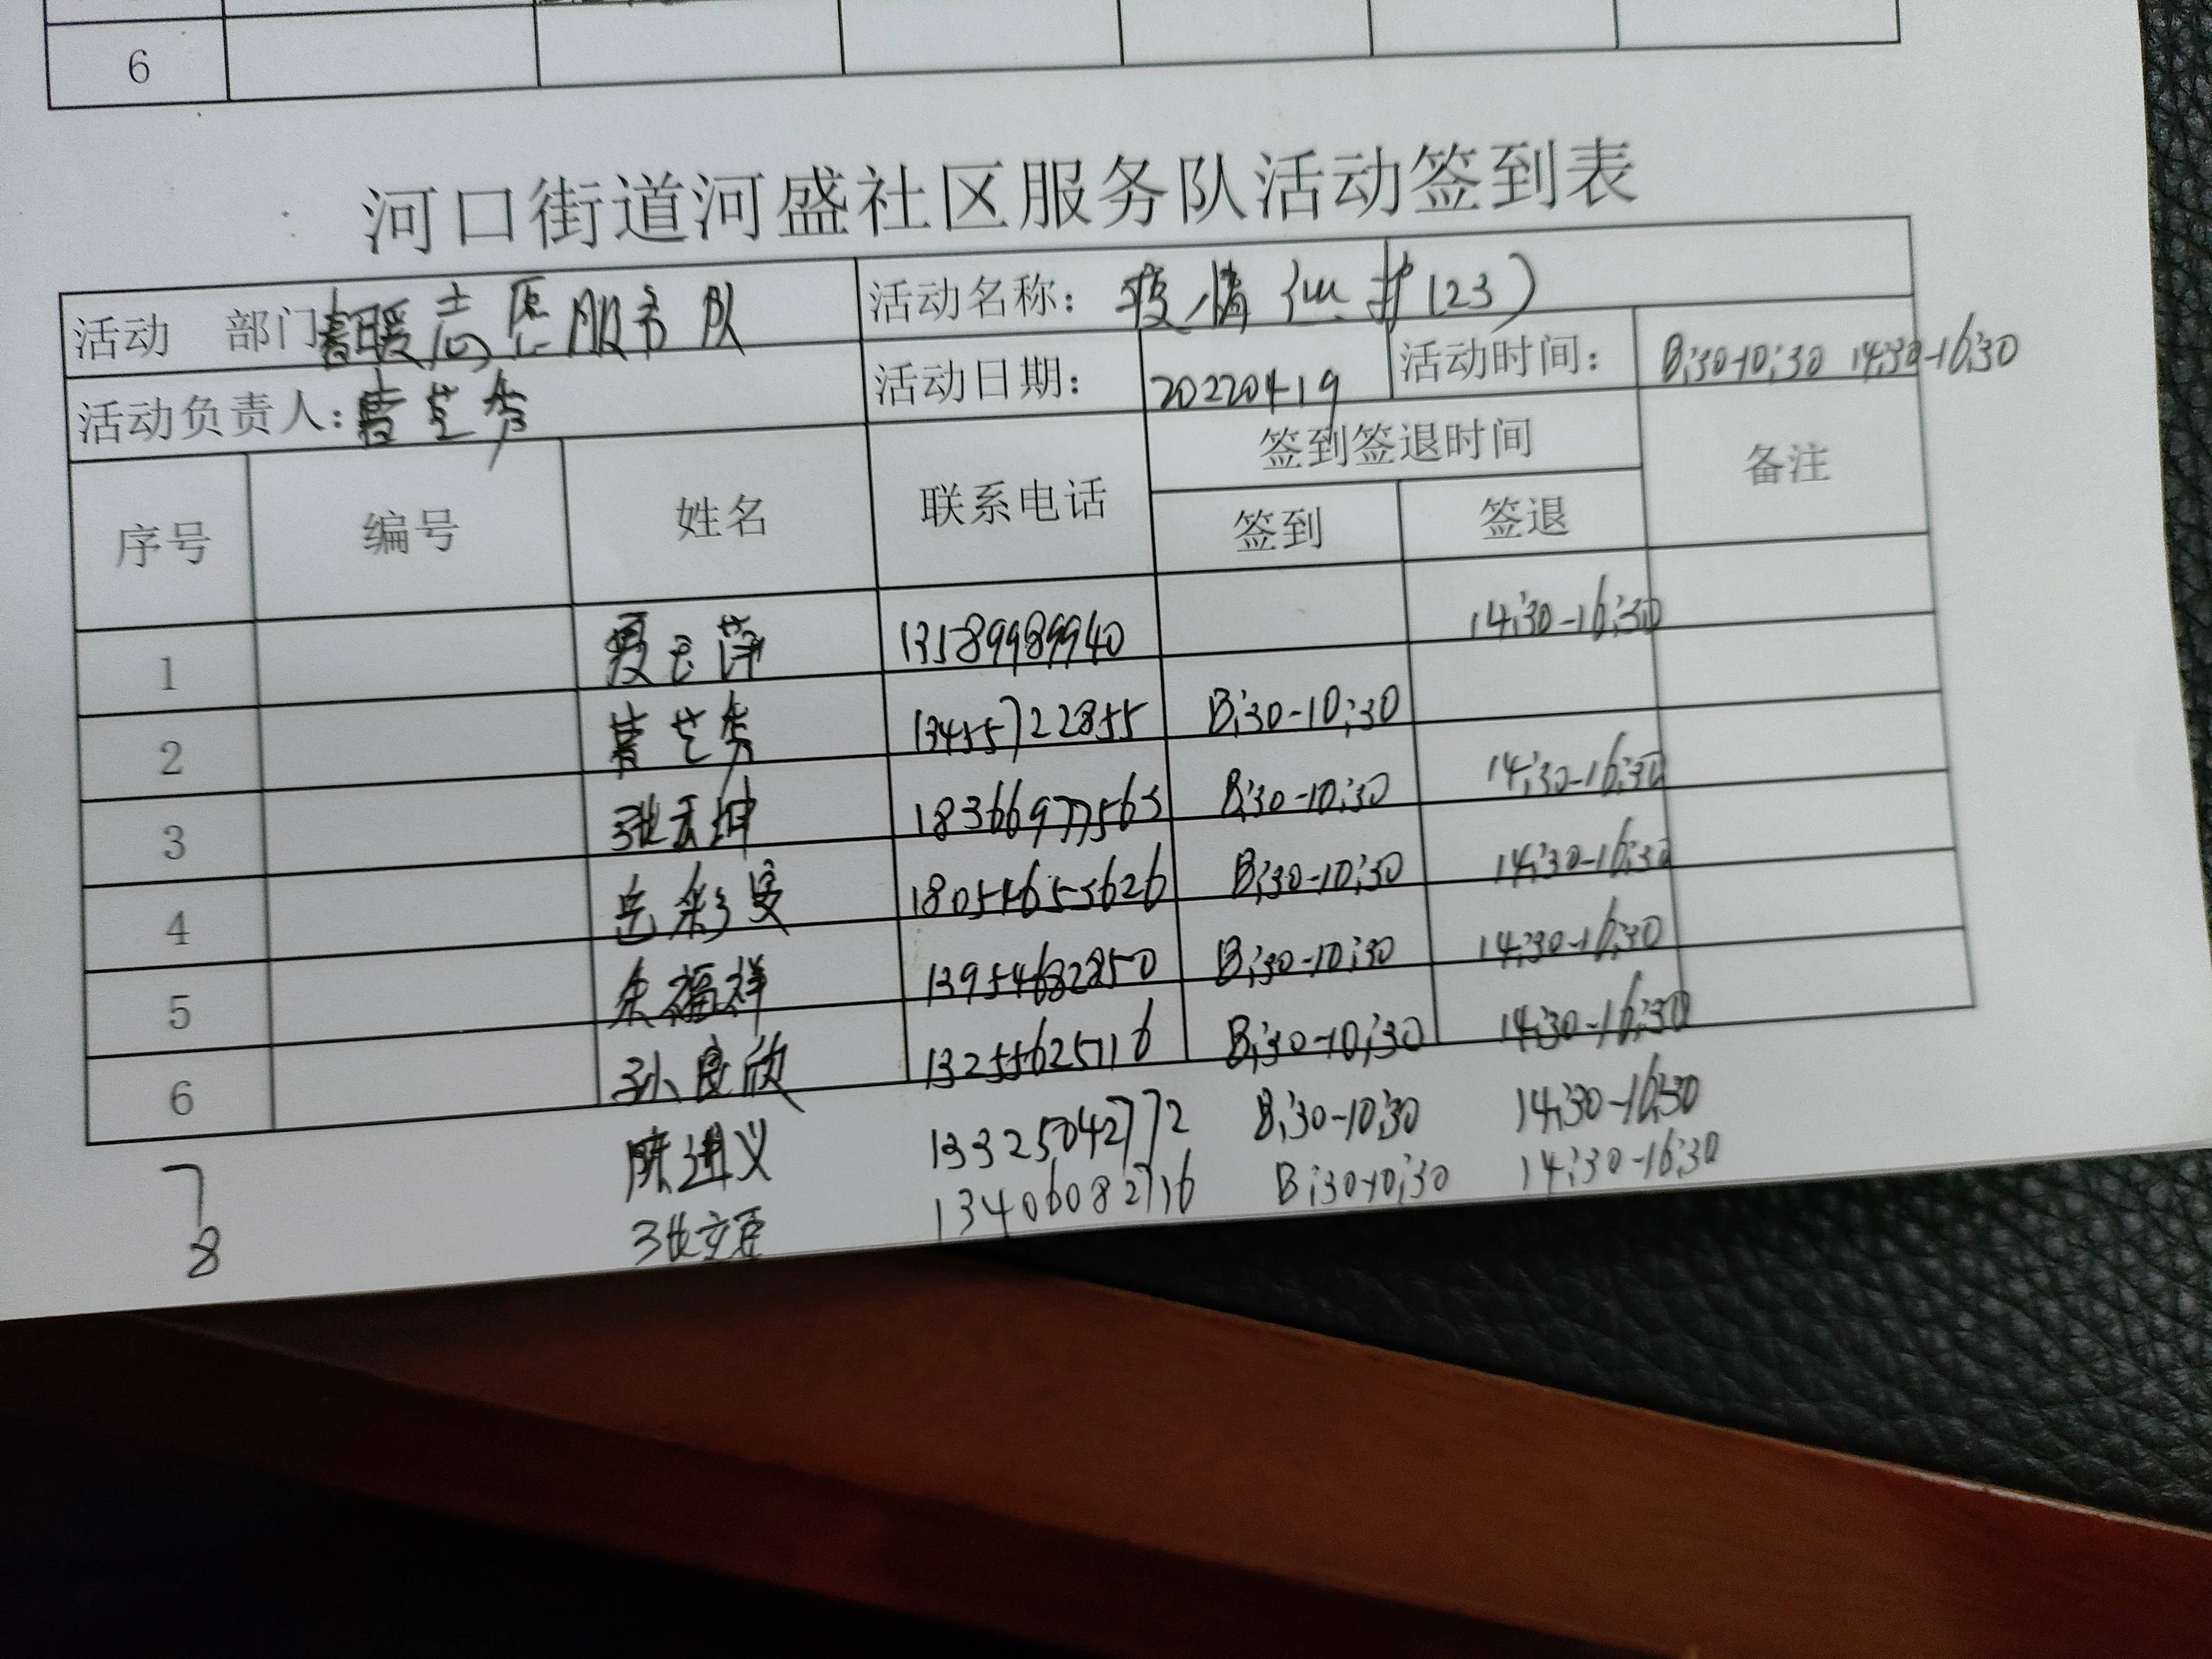 6
河口街道河盛社区服务队活动签到表
活动 部门 暖志愿服务队 活动名称: 疫情 (23)
活动负责人: 曹芝秀 活动日期: 20220419 活动时间: 8:30-10:30 14:30-16:30
序号 编号 姓名 联系电话 签到签退时间 备注
签到 签退
1 13589989940 14:30-16:30
2 曹芝秀 13455722855 8:30-10:30
3 张云坤 18366977563 8:30-10:30 14:30-16:30
4 岳彩曼 18054653626 8:30-10:30 14:30-16:30
5 福祥 13954682850 8:30-10:30 14:30-16:30
6 孙良欣 13255625716 8:30-10:30 14:30-16:30
7 陈进义 13325042772 8:30-10:30 14:30-16:30
8 张 13406082716 8:30-10:30 14:30-16:30